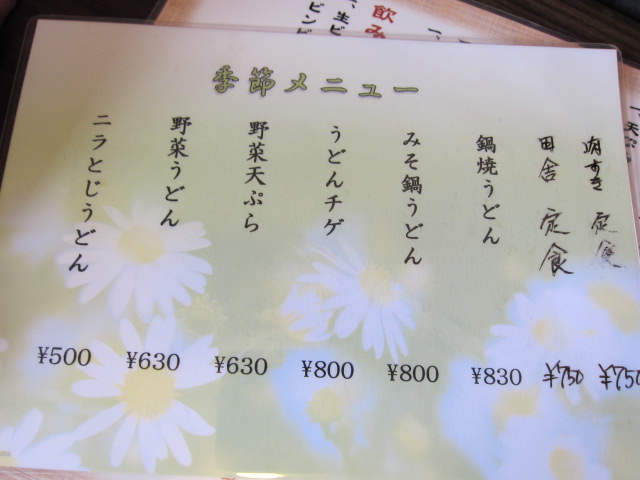 季節メニュー
肉すき定食 ¥750
田舎定食 ¥750
鍋焼うどん ¥830
みそ鍋うどん ¥800
うどんチゲ ¥800
野菜天ぷら ¥630
野菜うどん ¥630
ニラとじうどん ¥500
飲み
一、生ビ
ビンビ
一、天ぷ